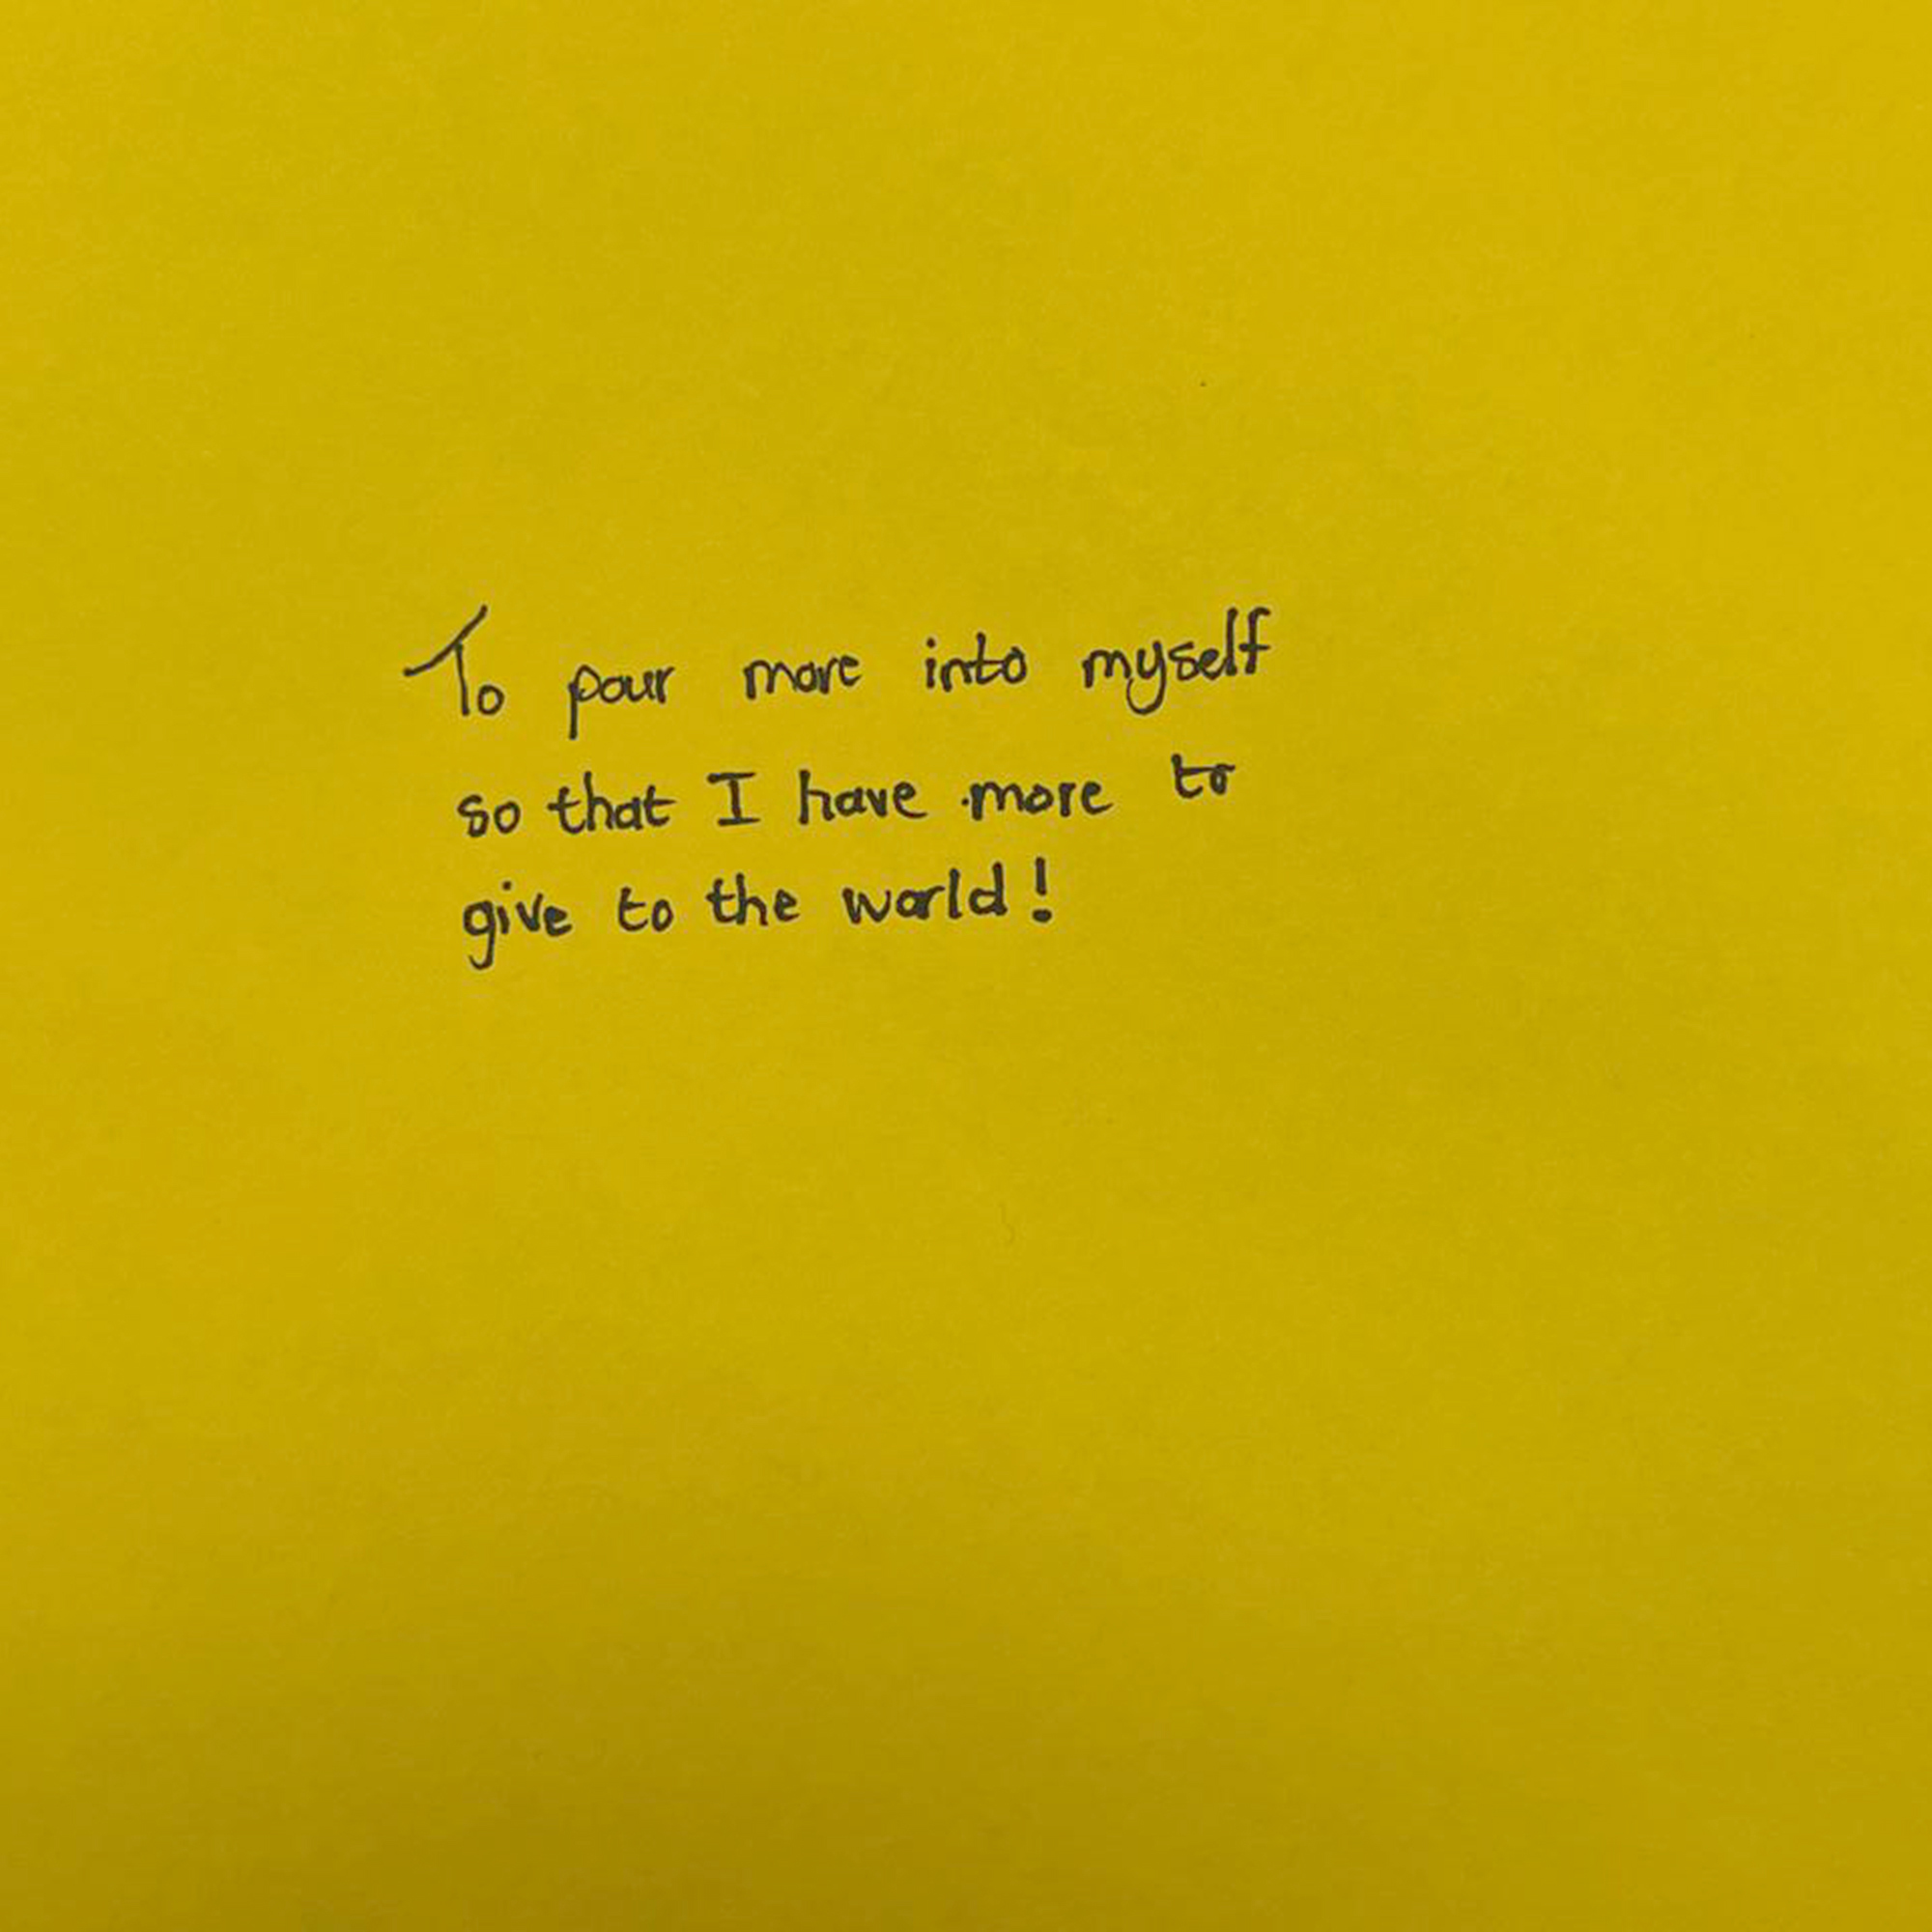 To pour more into myself
so that I have more to
give to the world!